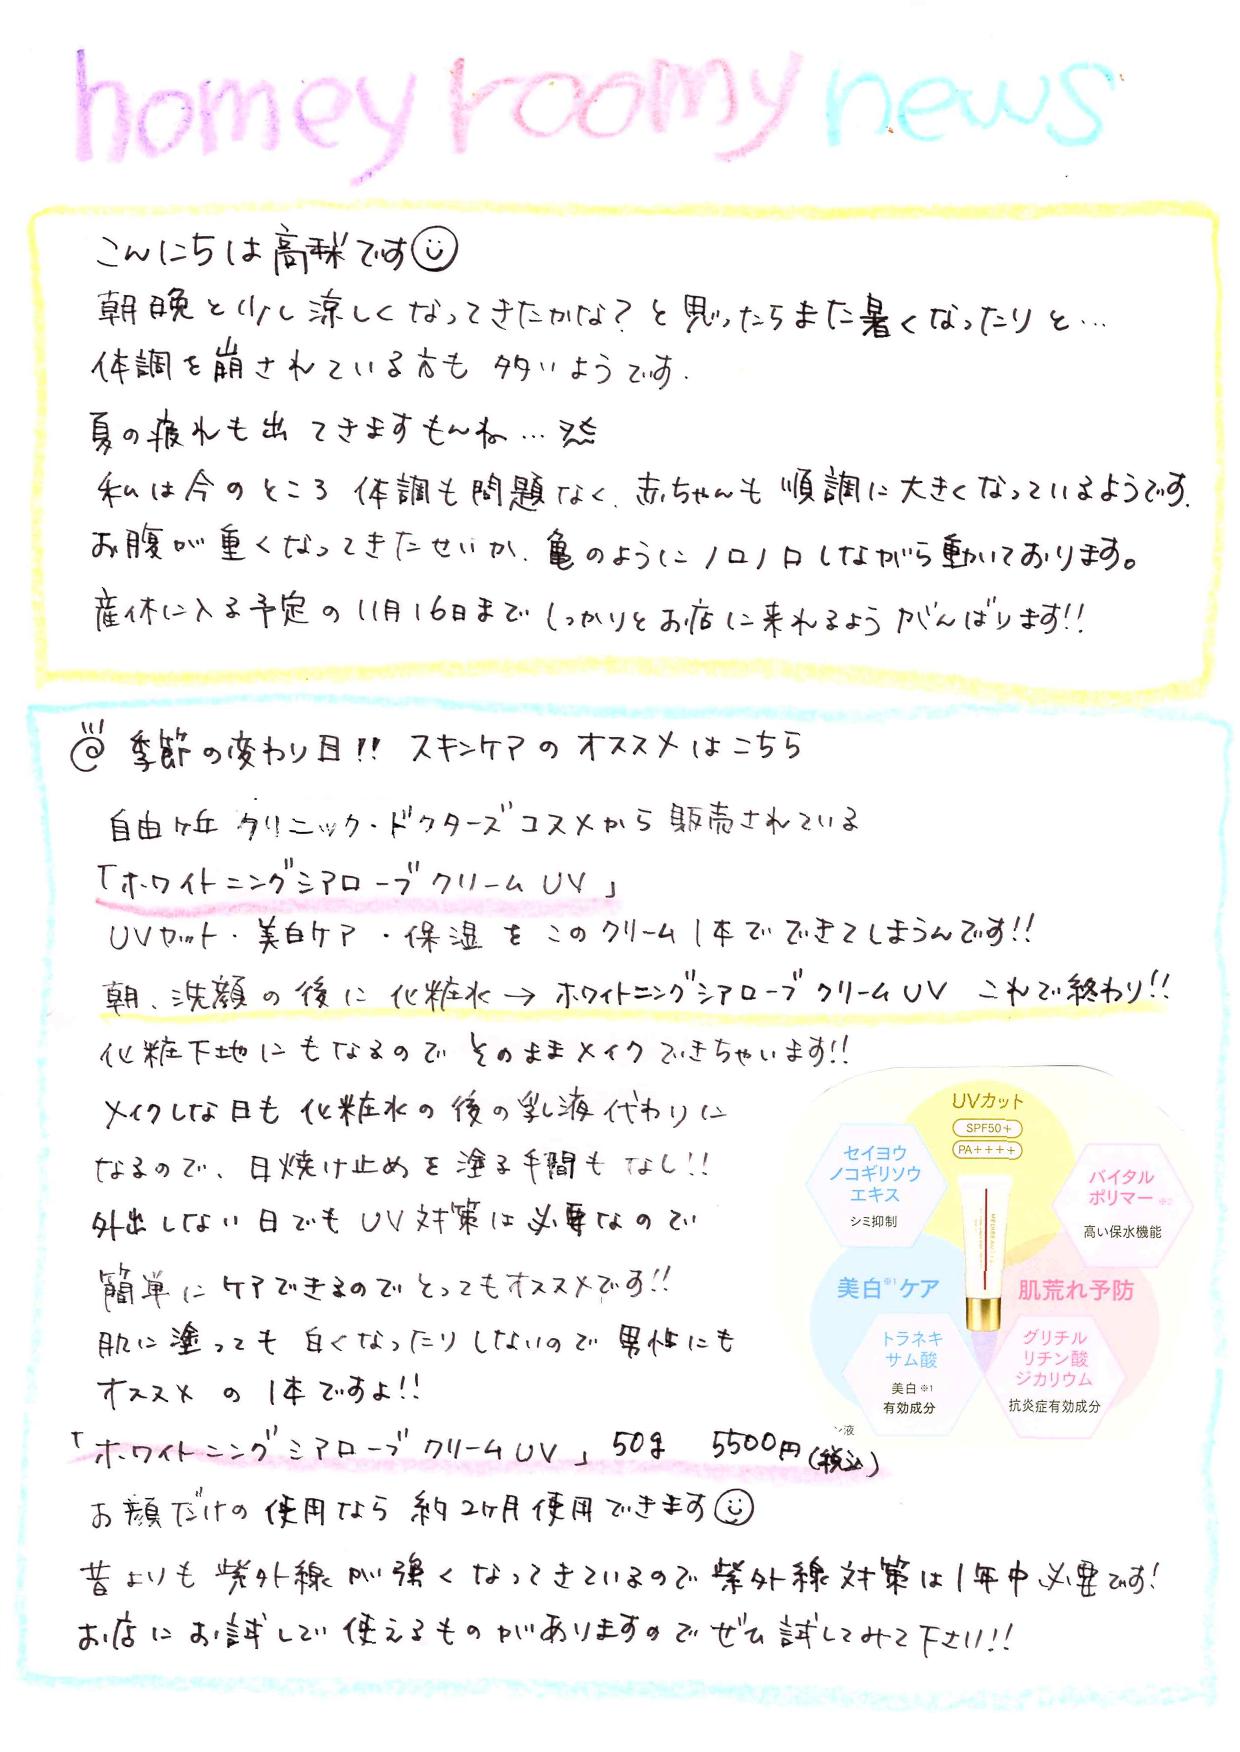 homey roomy news
こんにちは高梨です
朝晩と少し涼しくなってきたかな?と思ったらまた暑くなったりと…
体調を崩されている方も多いようです.
夏の疲れも出てきますもんね…
私は今のところ体調も問題なく、赤ちゃんも順調に大きくなっているようです.
お腹が重くなってきたせいか、亀のようにノロノロしながら動いております。
産休に入る予定の11月16日までしっかりとお店に来れるようがんばります!!
季節の変わり目!! スキンケアのオススメはこちら
自由ヶ丘クリニック・ドクターズコスメから販売されている
「ホワイトニングシアロープクリームUV」
UVカット・美白ケア・保湿をこのクリーム1本でできてしまうんです!!
朝、洗顔の後に化粧水→ホワイトニングシアロープクリームUV これで終わり!!
化粧下地にもなるのでそのままメイクできちゃいます!!
メイクしな日も化粧水の後の乳液代わりに
なるので、日焼け止めを塗る手間もなし!!
外出しない日でもUV対策は必要なので
簡単にケアできるのでとってもオススメです!!
肌に塗っても白くなったりしないので男性にも
オススメの1本ですよ!!
UVカット
SPF50+
PA++++
セイヨウ
ノコギリソウ
エキス
シミ抑制
バイタル
ポリマー※2
高い保水機能
美白※1ケア
肌荒れ予防
トラネキ
サム酸
美白※1
有効成分
グリチル
リチン酸
ジカリウム
抗炎症有効成分
ン液
「ホワイトニングシアロープクリームUV」50g 5500円(税込)
お顔だけの使用なら約2ヶ月使用できます
昔よりも紫外線が強くなってきているので紫外線対策は1年中必要です!
お店にお試しで使えるものがありますのでぜひ試してみて下さい!!